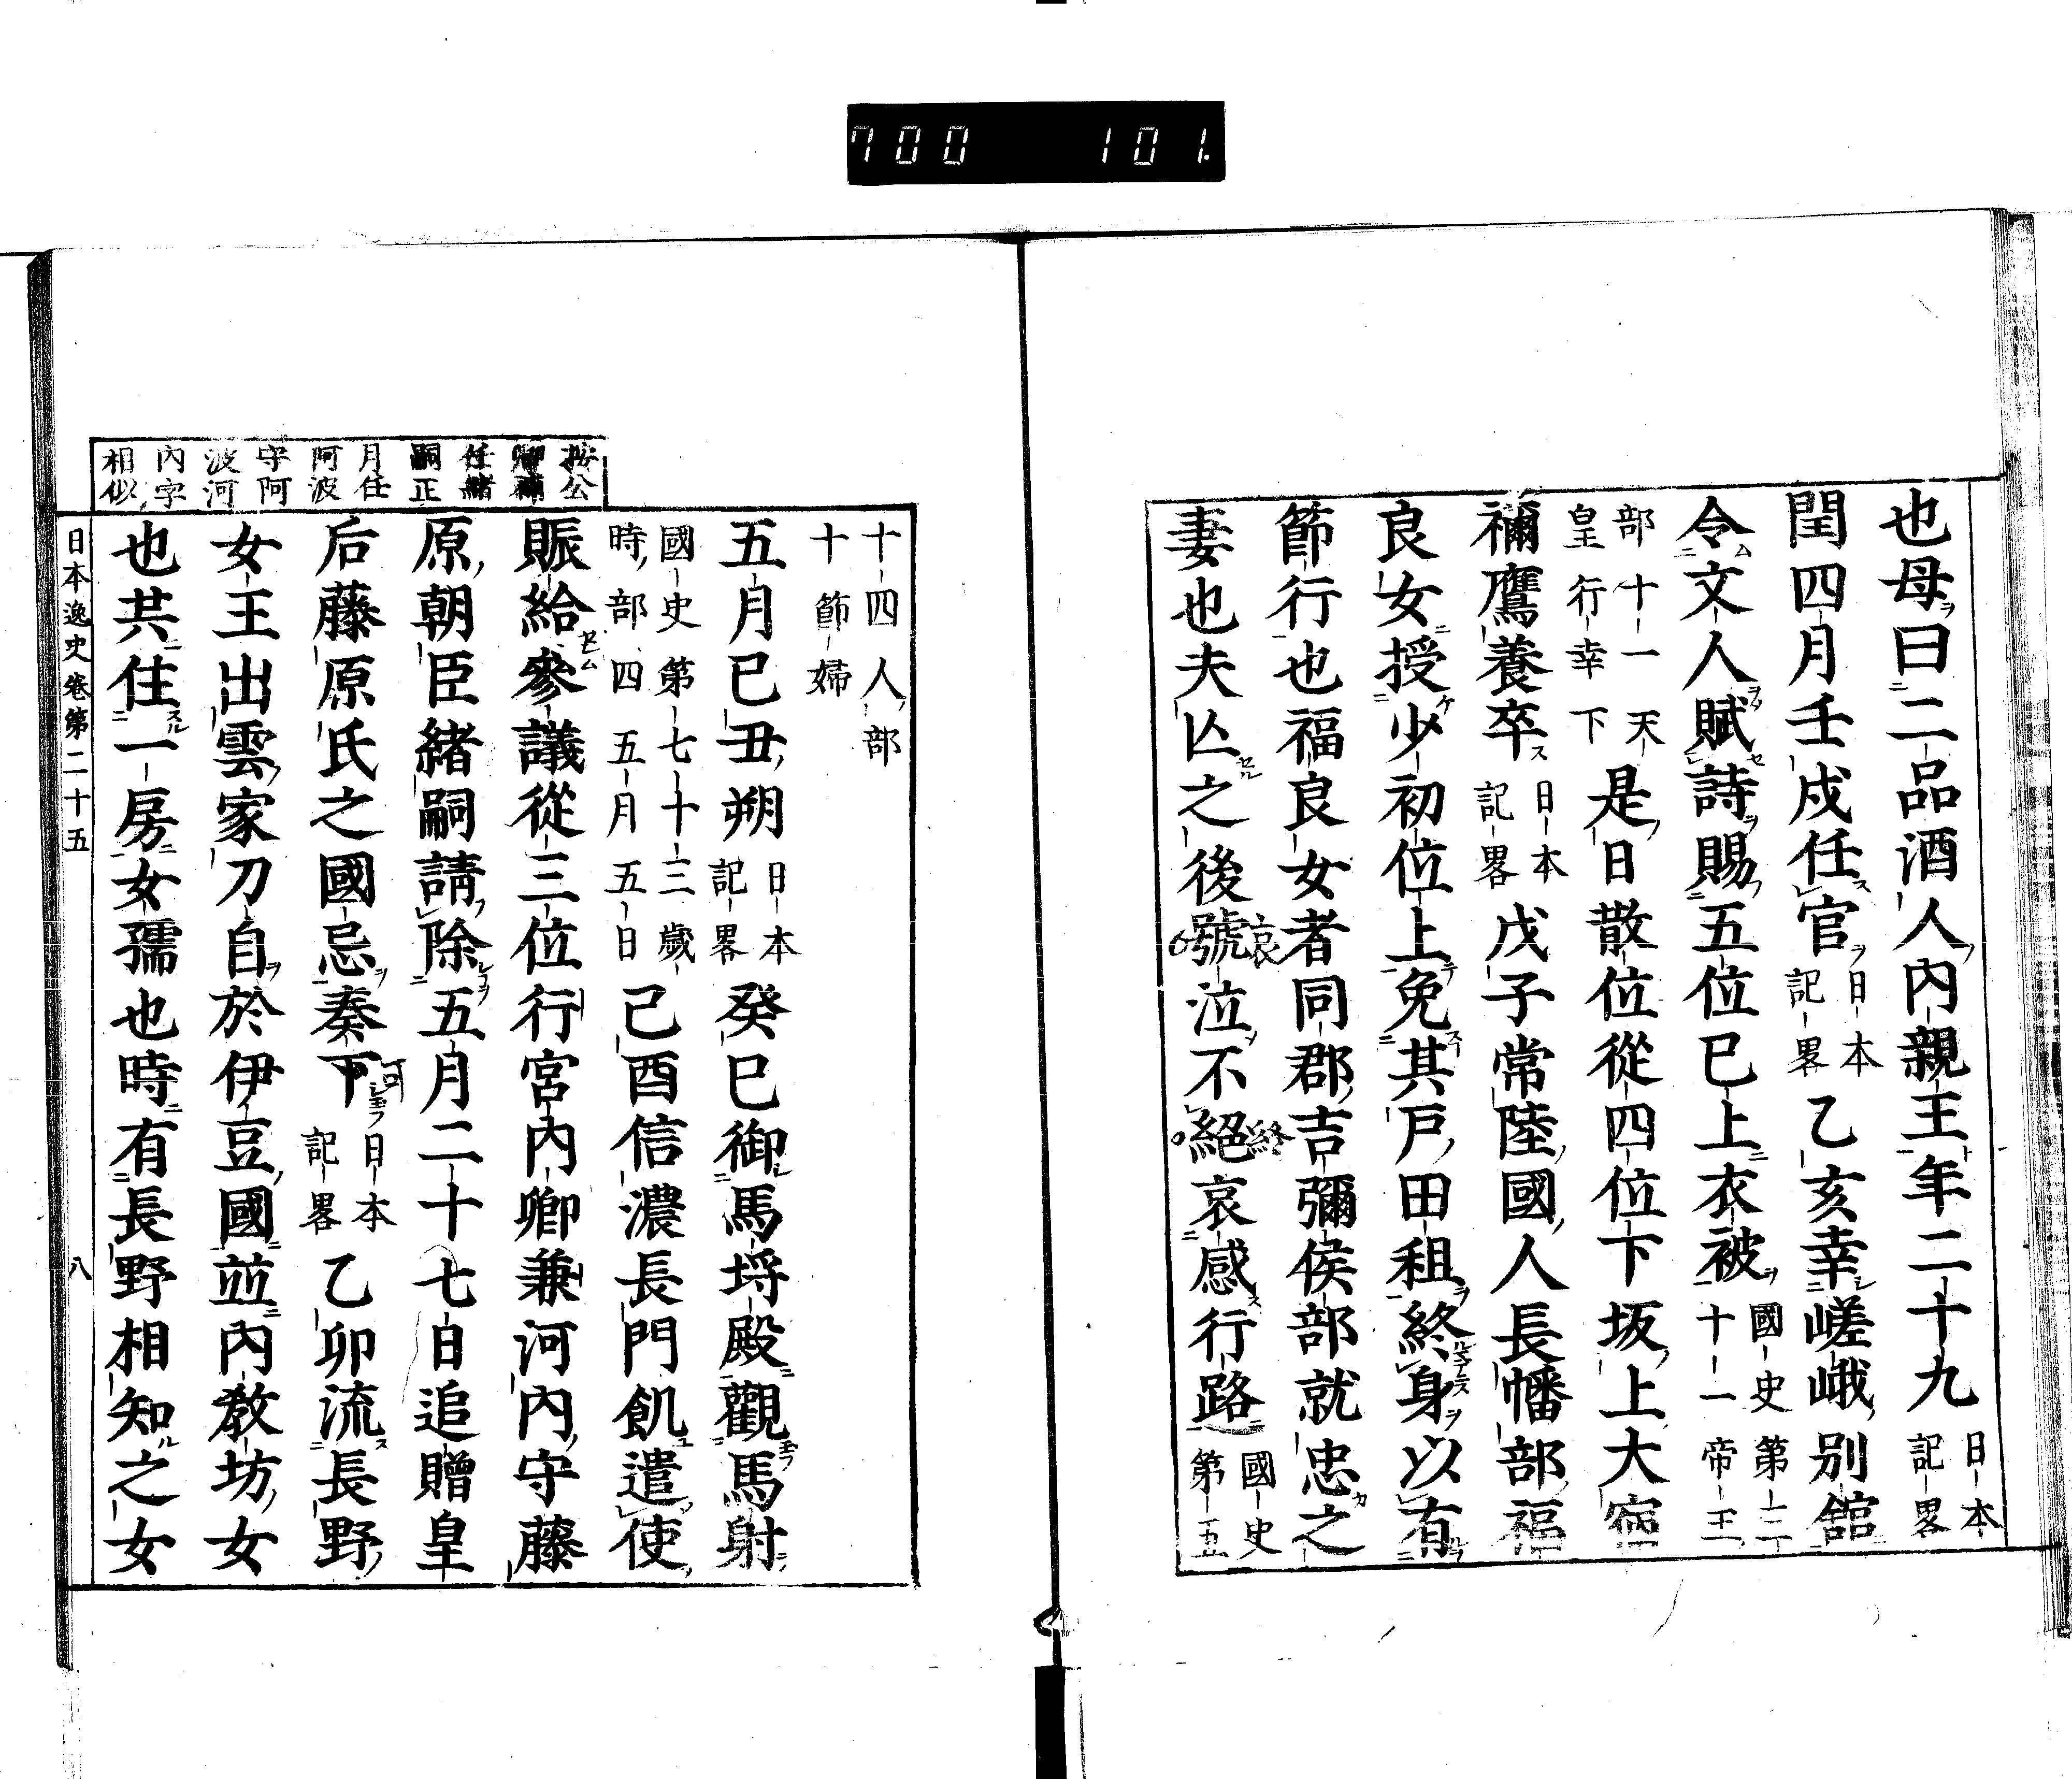 700 101.
也母曰二品酒人內親王年二十九日本記畧
閏四月壬戌任官日本記畧乙亥幸嵯峨別舘
令文人賦詩賜五位已上衣被國史第三十一帝王
部十一天皇行幸下是日散位從四位下坂上大宿
禰鷹養卒日本記畧戊子常陸國人長幡部福
良女授少初位上免其戶田租終身以有
節行也福良女者同郡吉彌侯部就忠之
妻也夫亾之後號泣不絕哀感行路國史第五
哀
終
十四人部十節婦
五月已丑朔日本記畧癸巳御馬埓殿觀馬射
國史第七十三歲時部四五月五日己酉信濃長門飢遣使
賑給參議從三位行宮內卿兼河內守藤
原朝臣緒嗣請除五月二十七日追贈皇
后藤原氏之國忌奏下日本記畧乙卯流長野
可
女王出雲家刀自於伊豆國並內教坊女
也共住一房女孺也時有長野相知之女
按公
卿補
任緒
嗣正
月任
阿波
守阿
波河
內字
相似
日本逸史卷第二十五 八